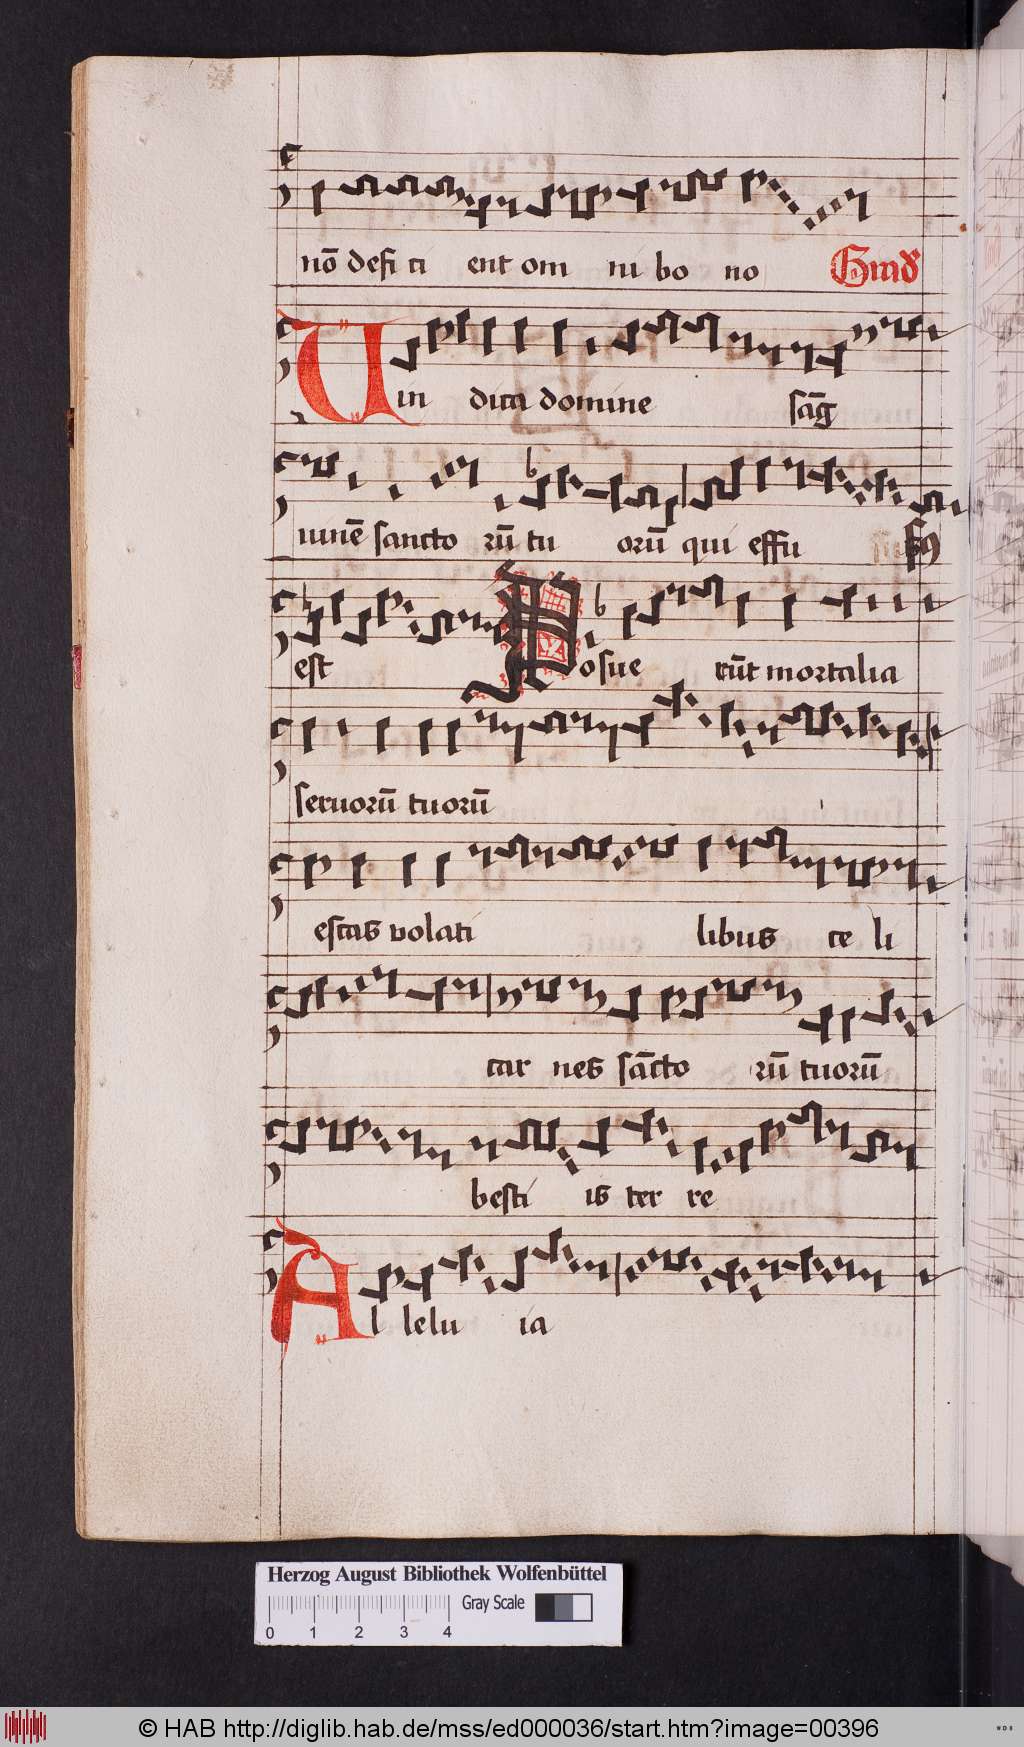 nō defi ci ent om ni bo no Grād
Uin dica domine sāg
uinē sancto rū tu orū qui effu sꝰ
est Posue rūt mortalia
seruorū tuorū
escas volati libus ce li
car nes sācto rū tuorū
besti is ter re
Al lelu ia
Herzog August Bibliothek Wolfenbüttel
Gray Scale
0 1 2 3 4
© HAB http://diglib.hab.de/mss/ed000036/start.htm?image=00396